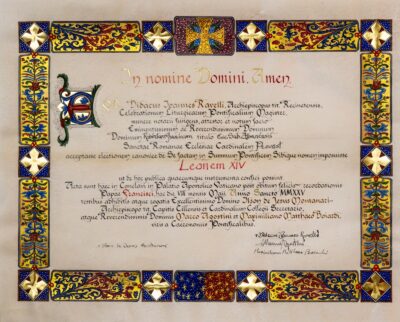 In nomine Domini. Amen
Ego Didacus Ioannes Ravelli, Archiepiscopus tit. Recinetensis,
Celebrationum Liturgicarum Pontificalium Magister,
munere notarii fungens, attestor et notum facio
Eminentissimum ac Reverendissimum Dominum
Dominum Robertum Franciscum
Sanctae Romanae Ecclesiae Cardinalem Prevost
acceptasse electionem canonice de Se factam in Summum Pontificem Sibique nomen imposuisse
Leonem XIV
ut de hoc publica quaecumque instrumenta confici possint.
Acta sunt haec in Conclavi in Palatio Apostolico Vaticano post obitum felicis recordationis
Papae Francisci, hac die VIII mensis Maii, Anno Sancto MMXXV
testibus adhibitis atque rogatis Excellentissimo Domino Ilson de Jesus Montanari
Archiepiscopo tit. Capitis Cillensis et Cardinalium Collegii Secretario,
atque Reverendissimi Dominis Marco Agostini et Maximiliano Matthaeo Boiardi
viris a Caeremoniis Pontificalibus.